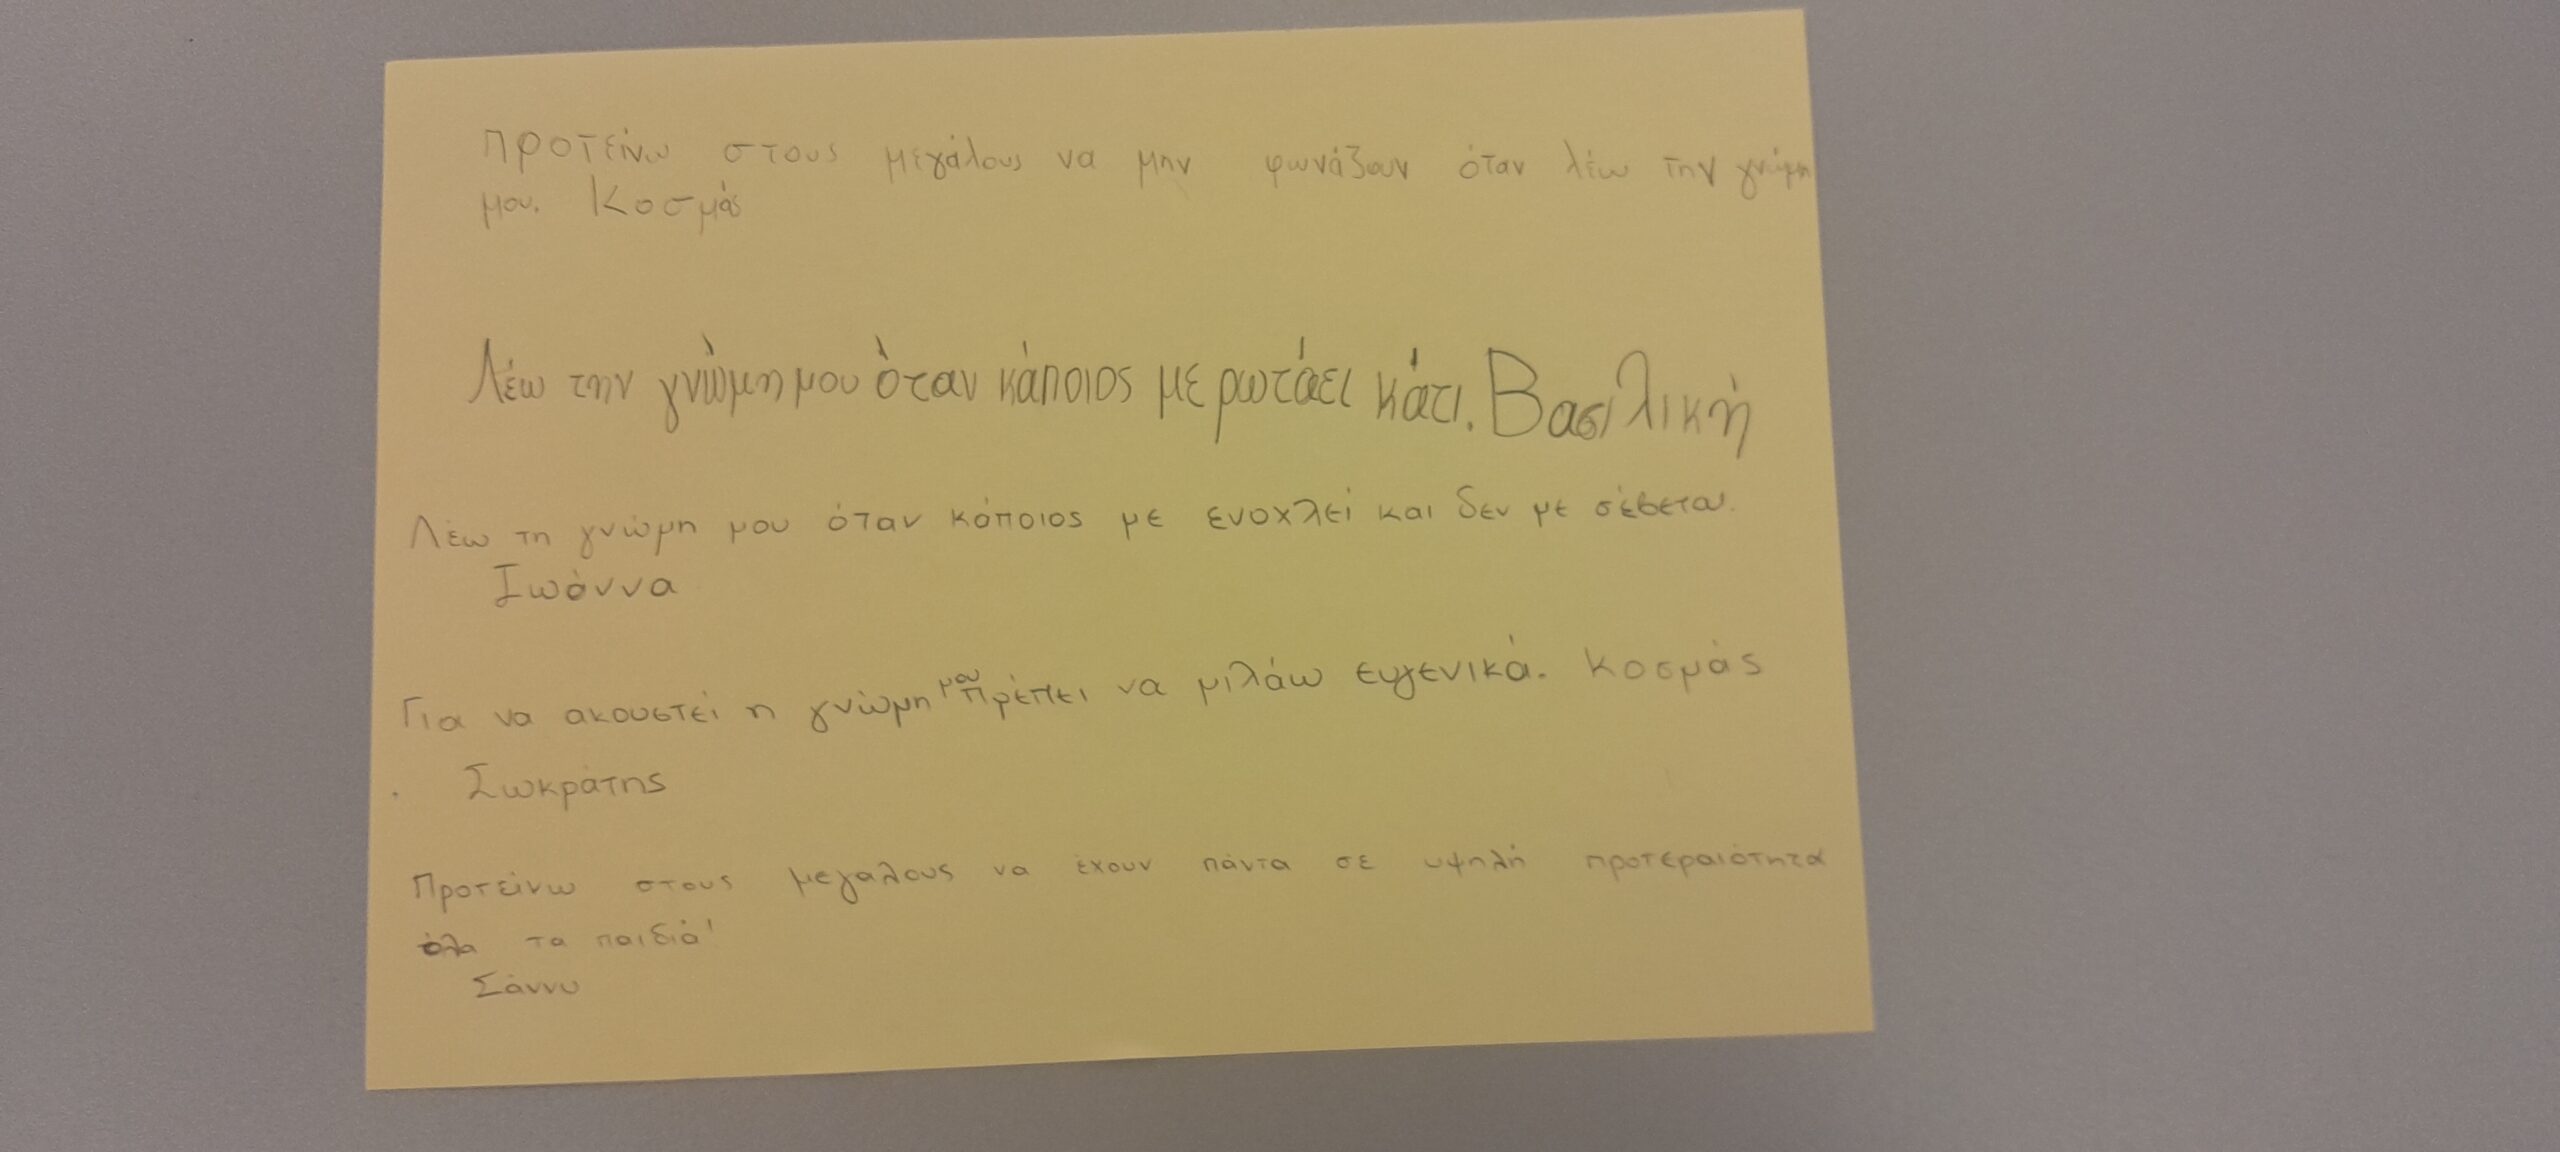 Προτείνω στους μεγάλους να μην φωνάζουν όταν λέω την γνώμη
μου. Κοσμάς
Λέω την γνώμη μου όταν κάποιος με ρωτάει κάτι. Βασιλική
Λέω τη γνώμη μου όταν κάποιος με ενοχλεί και δεν με σέβεται.
Ιωάννα
Για να ακουστεί η γνώμη μου πρέπει να μιλάω ευγενικά. Κοσμάς
Σωκράτης
Προτείνω στους μεγαλους να έχουν πάντα σε υψηλή προτεραιότητα
όλα τα παιδιά!
Σάννυ